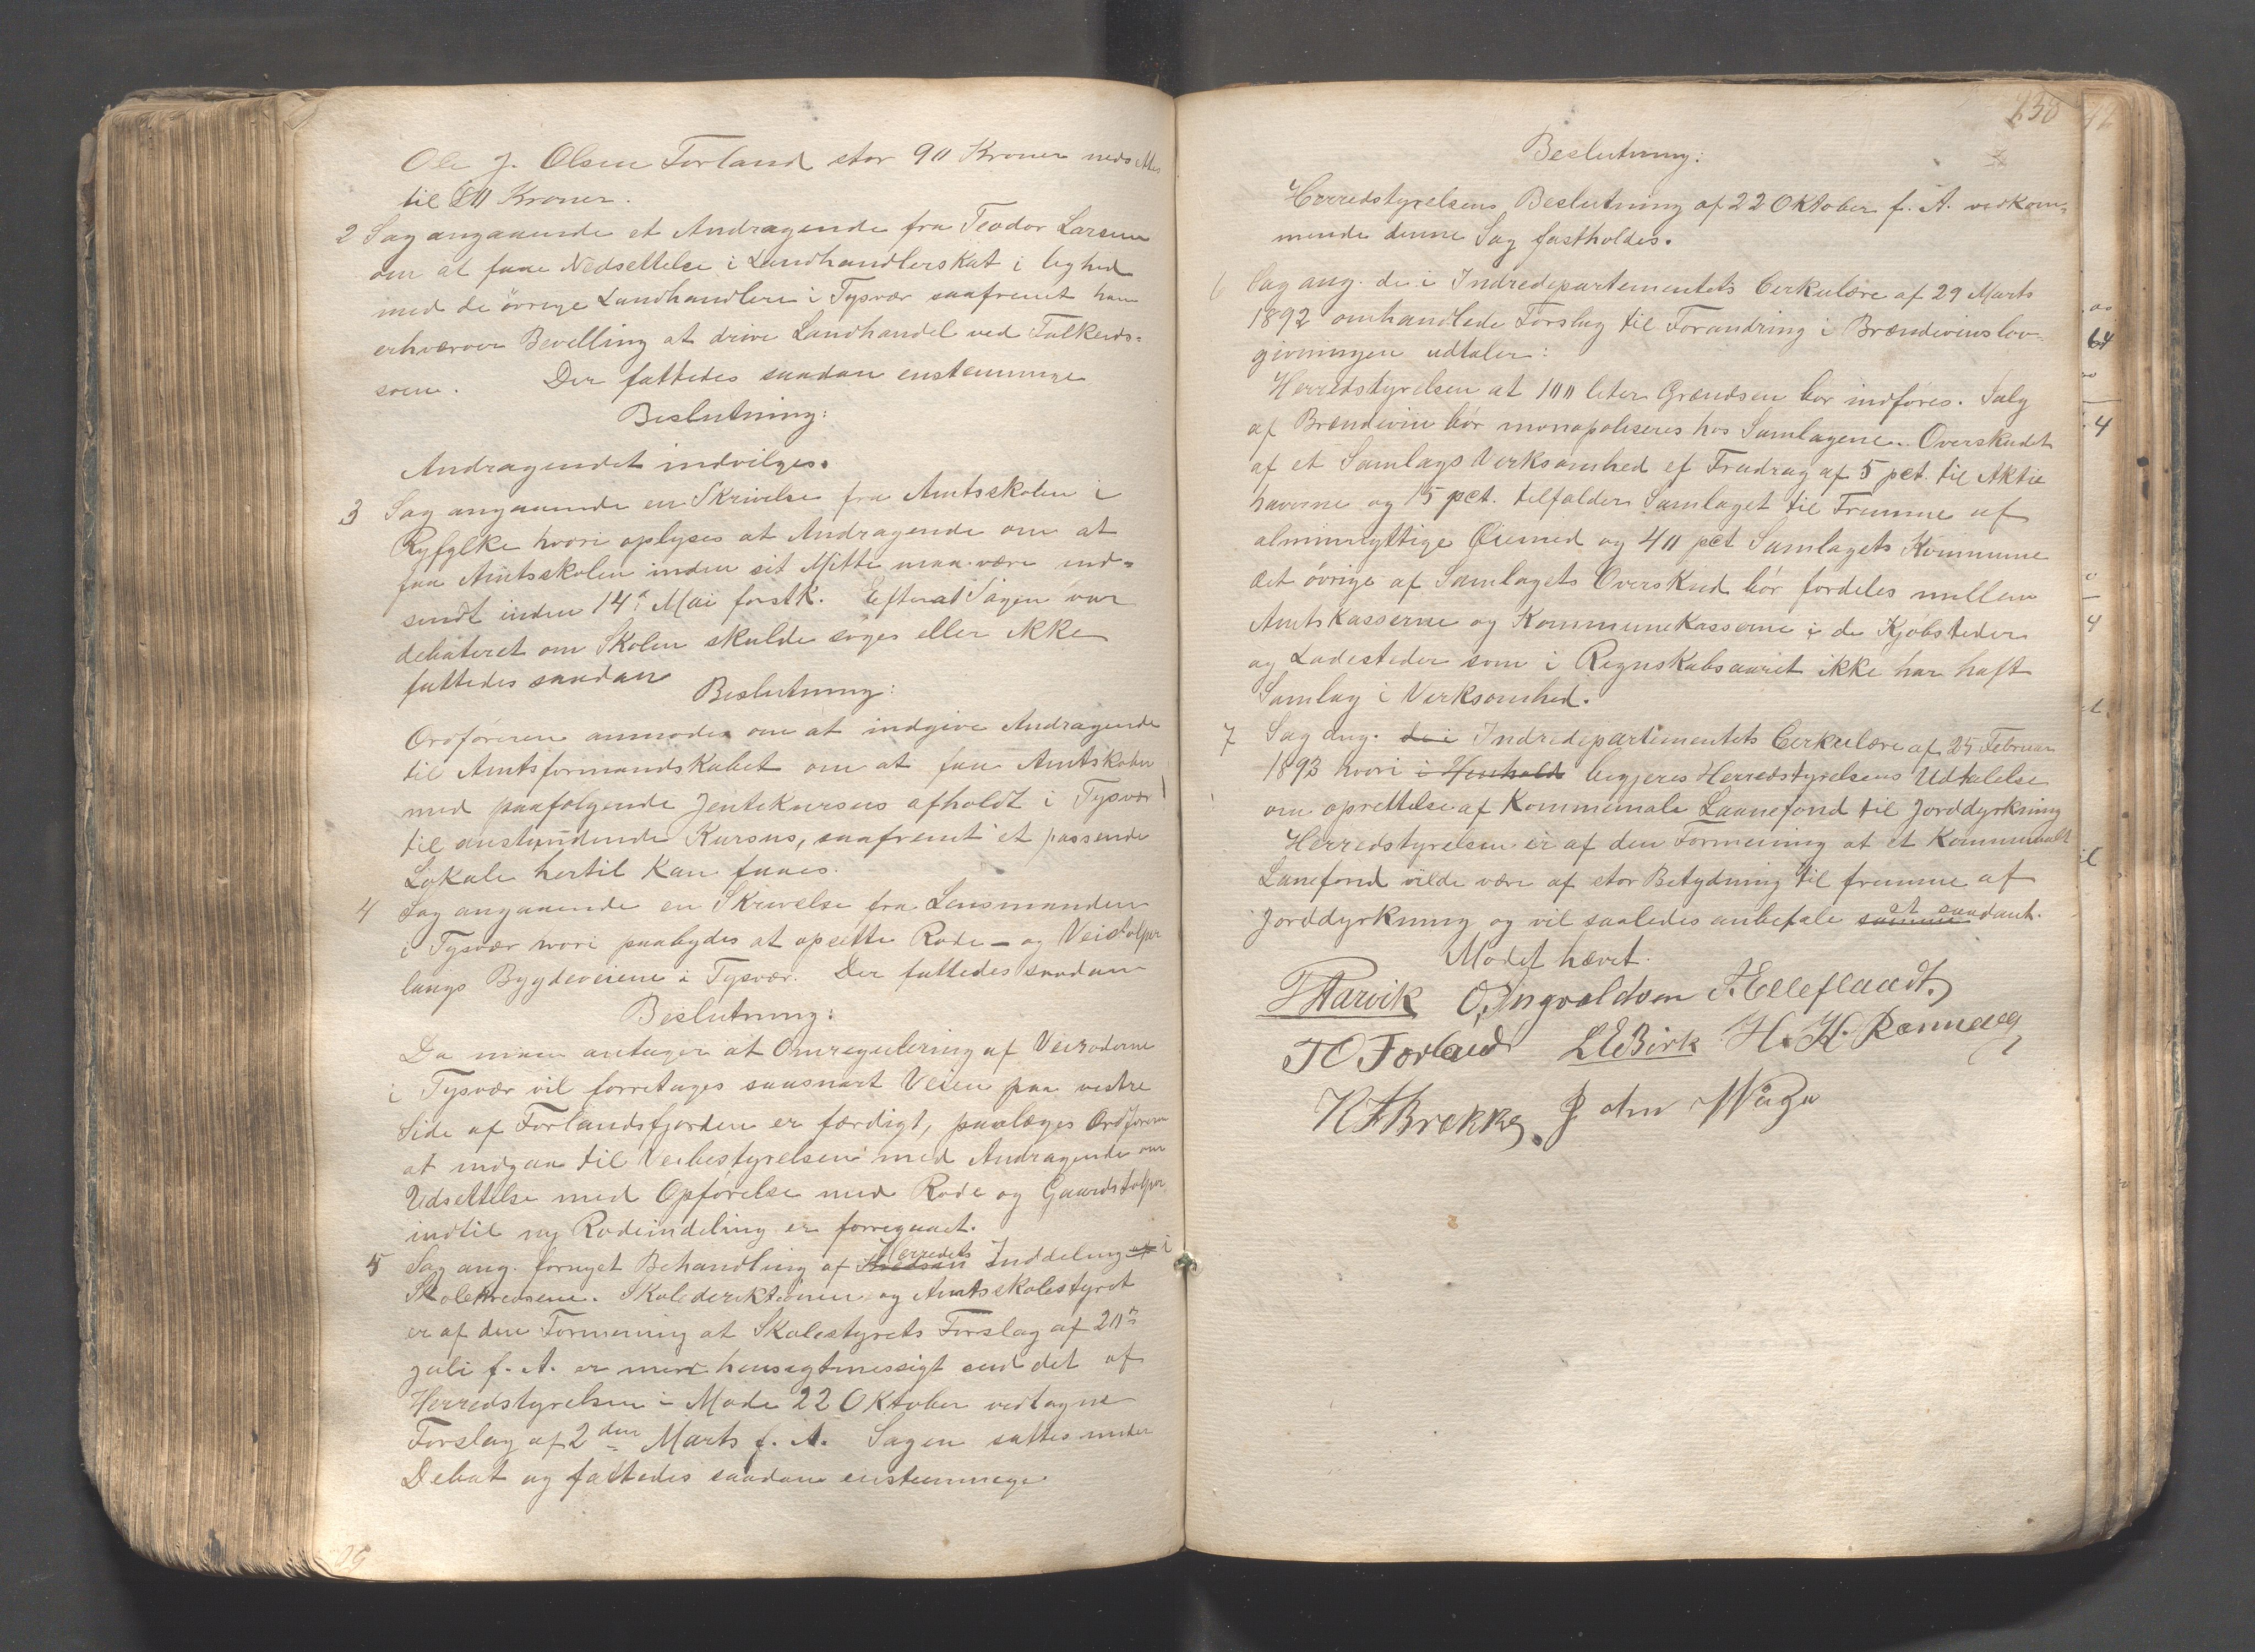 Ole J. Olsen Førland stor 90 Kroner nedsættes
til 80 Kroner.
2 Sag angaaende et Andragende fra Teodor Larsen
om at faae Nedsettelse i Landhandlerskat i lighed
med de øvrige Landhandlere i Tysvær saafremt han
erhverver Bevilling at drive Landhandel ved Falkeids-
søen. Der fattedes saadan enstemmige
Beslutning:
Andragendet indvilges.
3 Sag angaaende en Skrivelse fra Amtsskolen i
Ryfylke hvori oplyses at Andragende om at
faa Amtsskolen inden sit Mitte maa være ind-
sendt inden 14de Mai førstk. Efterat Sagen var
debateret om Skolen skulde søges eller ikke
fattedes saadan
Beslutning:
Ordføreren anmodes om at indgive Andragende
til Amtsformandskabet om at faa Amtskolen
med paafølgende Jentekursus afholdt i Tysvær
til anstundende Kursus, saafremt et passende
Lokale hertil kan faaes.
4 Sag angaaende en Skrivelse fra Lensmanden
i Tysvær hvori paabydes at opsette Rode- og Veistolper
langs Bygdeveiene i Tysvær. Der fattedes saadan
Beslutning:
Da man antager at Omregulering af Veiroderne
i Tysvær vil forretages saasnart Veien paa vestre
Side af Førlandsfjorden er færdigt, paalægges Ordføreren
at indgaa til Veibestyrelsen med Andragende om
Udsettelse med Opførelse med Rode og Gaardstolper
indtil ny Rodeindeling er forregaaet.
5 Sag ang. fornyet Behandling af Herredets Inddeling af i
Skolekredsene. Skolederektionen og Amtsskolestyret
er af den Formening at Skolestyrets Forslag af 20de
Juli f. A. er mere hensigtmessigt end det af
Herredstyrelsen i Møde 22 Oktober vedtagne
Forslag af 2den Marts f. A. Sagen sattes under
Debat og fattedes saadan enstemmige
238
Beslutning:
Herredstyrelsens Beslutning af 22 Oktober f. A. vedkom-
mende denne Sag fastholdes.
6 Sag ang. de i Indredepartementets Cerkulære af 29 Marts
1892 omhandlede Forslag til Forandring i Brændevinslov-
givningen udtaler:
Herredstyrelsen at 100 leter Grændsen bør indføres. Salg
af Brændevin bør monopoliseres hos Samlagene. Overskudet
af et Samlags Verksomhed ef Fradrag af 5 pct. til Aktie
haverne og 15 pct. tilfalder Samlaget til Fremme af
alminnyttige Øiemed og 40 pct Samlagets Kommune
det øvrige af Samlagets Overskud bør fordeles mellem
Amtskasserne og Kommunekasserne i de Kjøbsteder
og Ladesteder som i Regnskabsaaret ikke har haft
Samlag i Verksomhed.
7 Sag ang. de i Indredepartementets Cerkulære af 25 Februar
1893 hvori i Henhold begjeres Herredstyrelsens Udtalelse
om oprettelse af Kommunale Laanefond til Jorddyrkning
Herredstyrelsen er af den Formening at et Kommunalt
Lanefond vilde være af stor Betydning til fremme af
Jorddyrkning og vil saaledes anbefale samme et saadant.
Mødet hævet.
Aarvik O. Ingvaldsen S. Elleflaadt
T O Førland L E Birk H. H. Rønnevig
K H Brekke John Våge